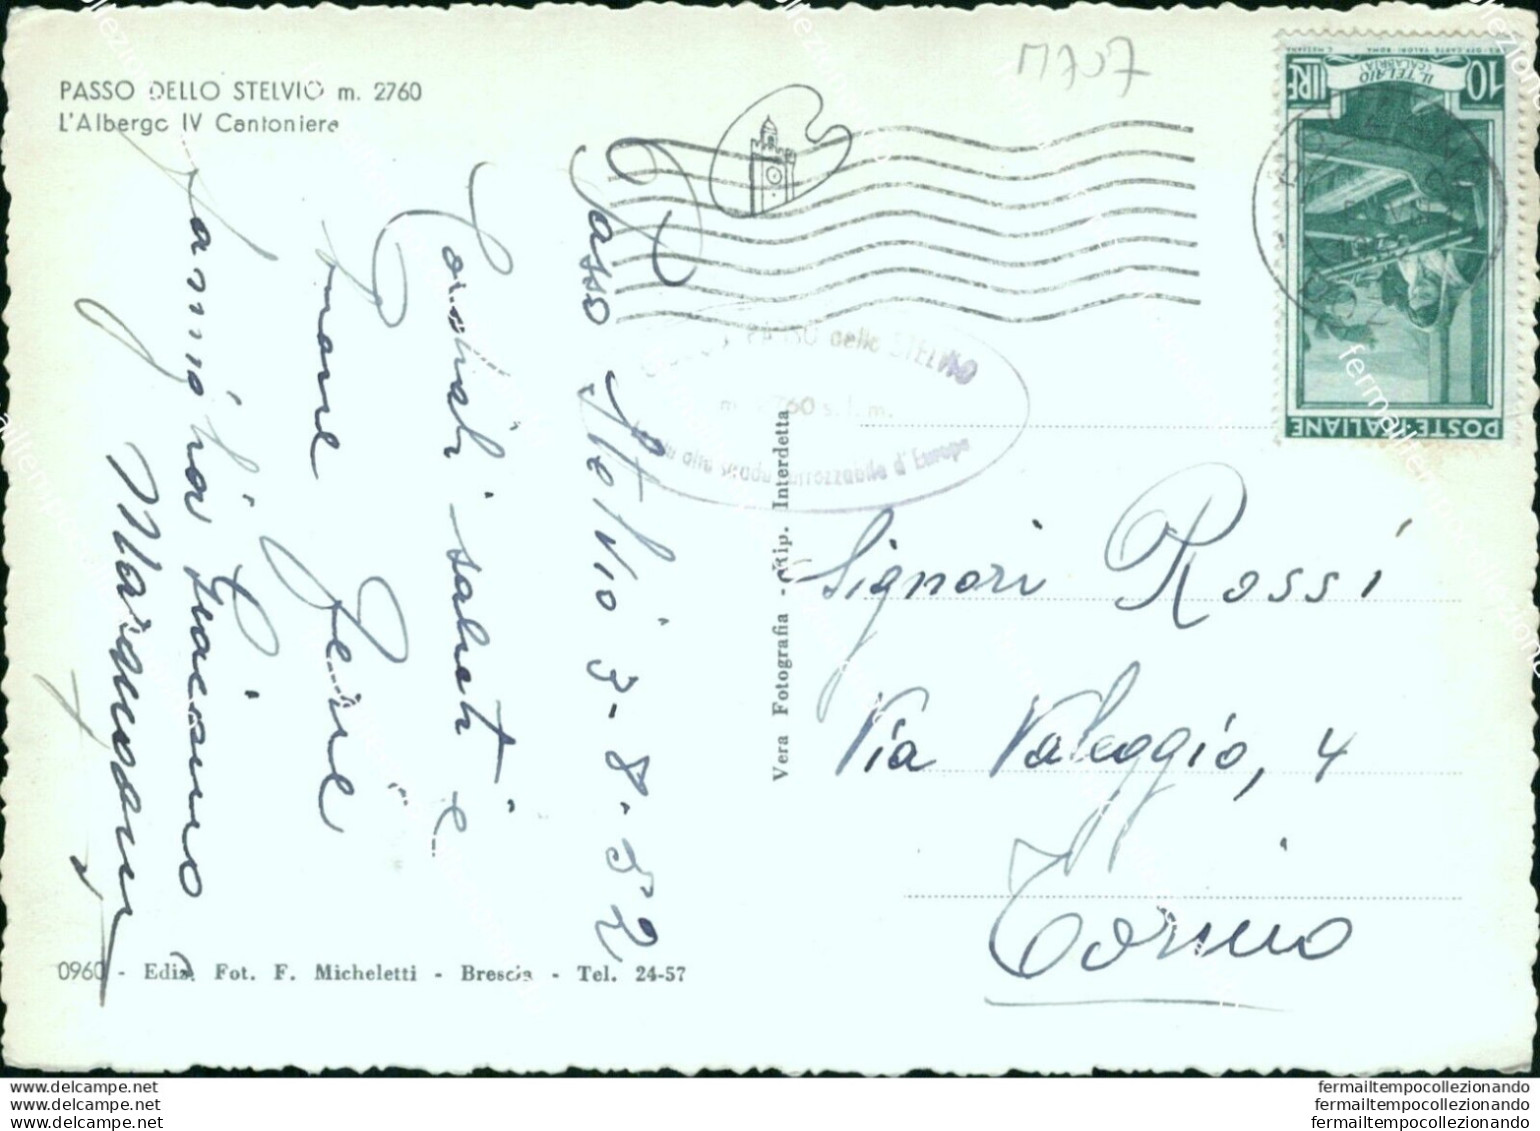 PASSO DELLO STELVIO m. 2760
L'Albergo IV Cantoniera
M707
Passo Stelvio 3-8-52
Cordiali saluti e
Vera Fotografia - Rip. Interdetta
PASSO dello STELVIO
m. 2760 s.l.m.
alta strada carrozzabile d'Europa
10 LIRE
IL TELAIO
(CALABRIA)
POSTE ITALIANE
Signori Rossi
Via Valeggio, 4
Torino
0960 - Ediz. Fot. F. Micheletti - Brescia - Tel. 24-57
delcampe.net
delcampe.net
delcampe.net
fermailtempocollezionando
fermailtempocollezionando
fermailtempocollezionando